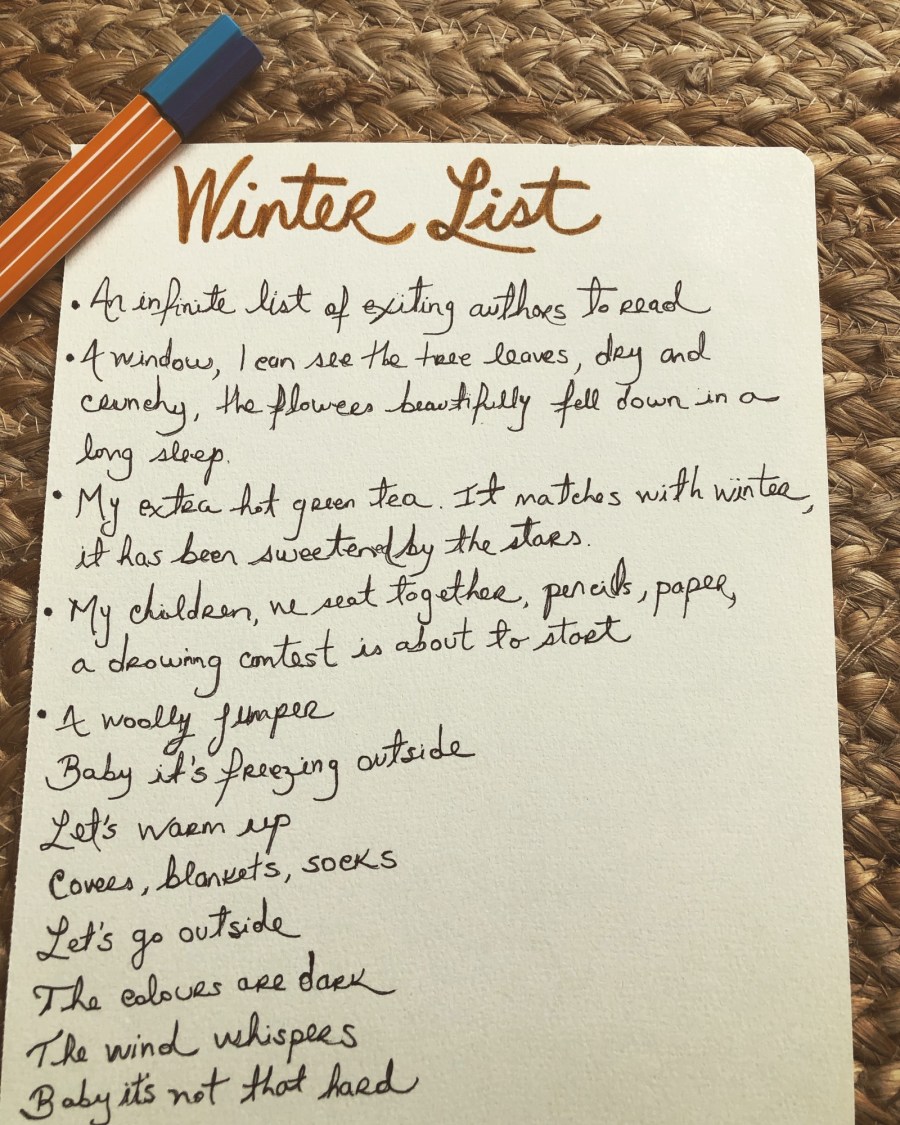 Winter List
• An infinite list of exiting authors to read
• A window, I can see the tree leaves, dry and
crunchy, the flowers beautifully fell down in a
long sleep.
• My extra hot green tea. It matches with winter,
it has been sweetened by the stars.
• My children, we seat together, pencils, paper,
a drowing contest is about to start
• A woolly jumper
Baby it's freezing outside
Let's warm up
Covers, blankets, socks
Let's go outside
The colours are dark
The wind whispers
Baby it's not that hard